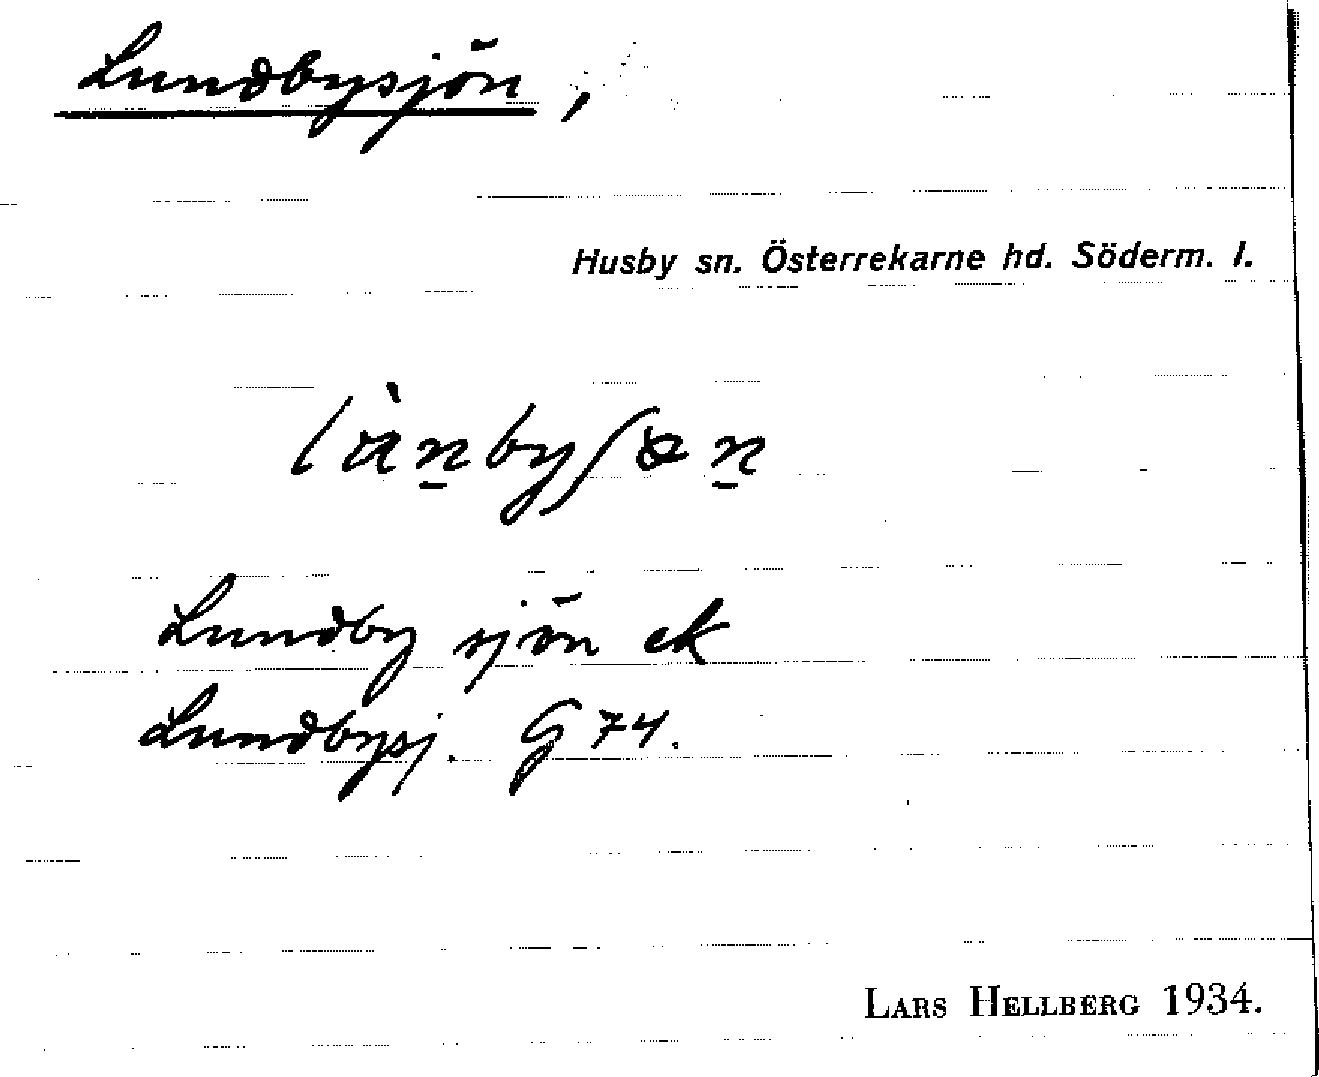 Lundbysjön,
Husby sn. Östersrekarne hd. Söderm. l.
làn̲byʃøn̲
Lundby sjön ek
Lundbysj. G 74.
LARS HELLBERG 1934.